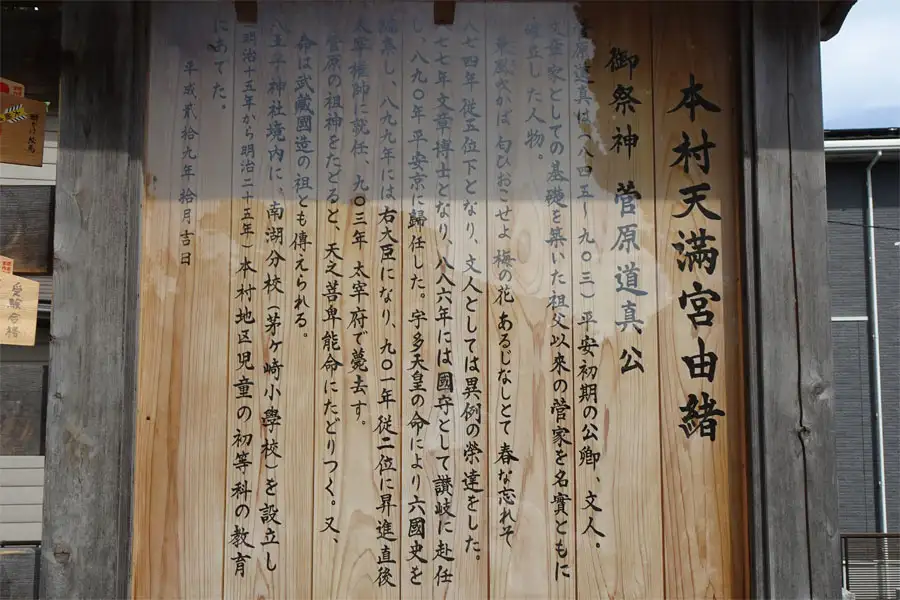 本村天満宮由緒
御祭神 菅原道真公
菅原道真は(八四五〜九〇三)平安初期の公卿、文人。
文章家としての基礎を築いた祖父以来の菅家を名實ともに
確立した人物。
東風吹かば 匂ひおこせよ 梅の花 あるじなしとて 春な忘れそ
八七四年 従五位下となり、文人としては異例の榮達をした。
八七七年 文章博士となり、八八六年には國守として讃岐に赴任
し、八九〇年平安京に歸任した。宇多天皇の命により六國史を
編集し、八九九年には右大臣になり、九〇一年従二位に昇進直後
太宰権帥に就任、九〇三年 太宰府で薨去す。
菅原の祖神をたどると、天之菩卑能命にたどりつく。又、
命は武蔵國造の祖とも傳えられる。
八王子神社境内に、南湖分校(茅ヶ崎小學校)を設立し
(明治十五年から明治二十五年)本村地区児童の初等科の教育
にあてた。
平成貮拾九年拾月吉日
受験合格